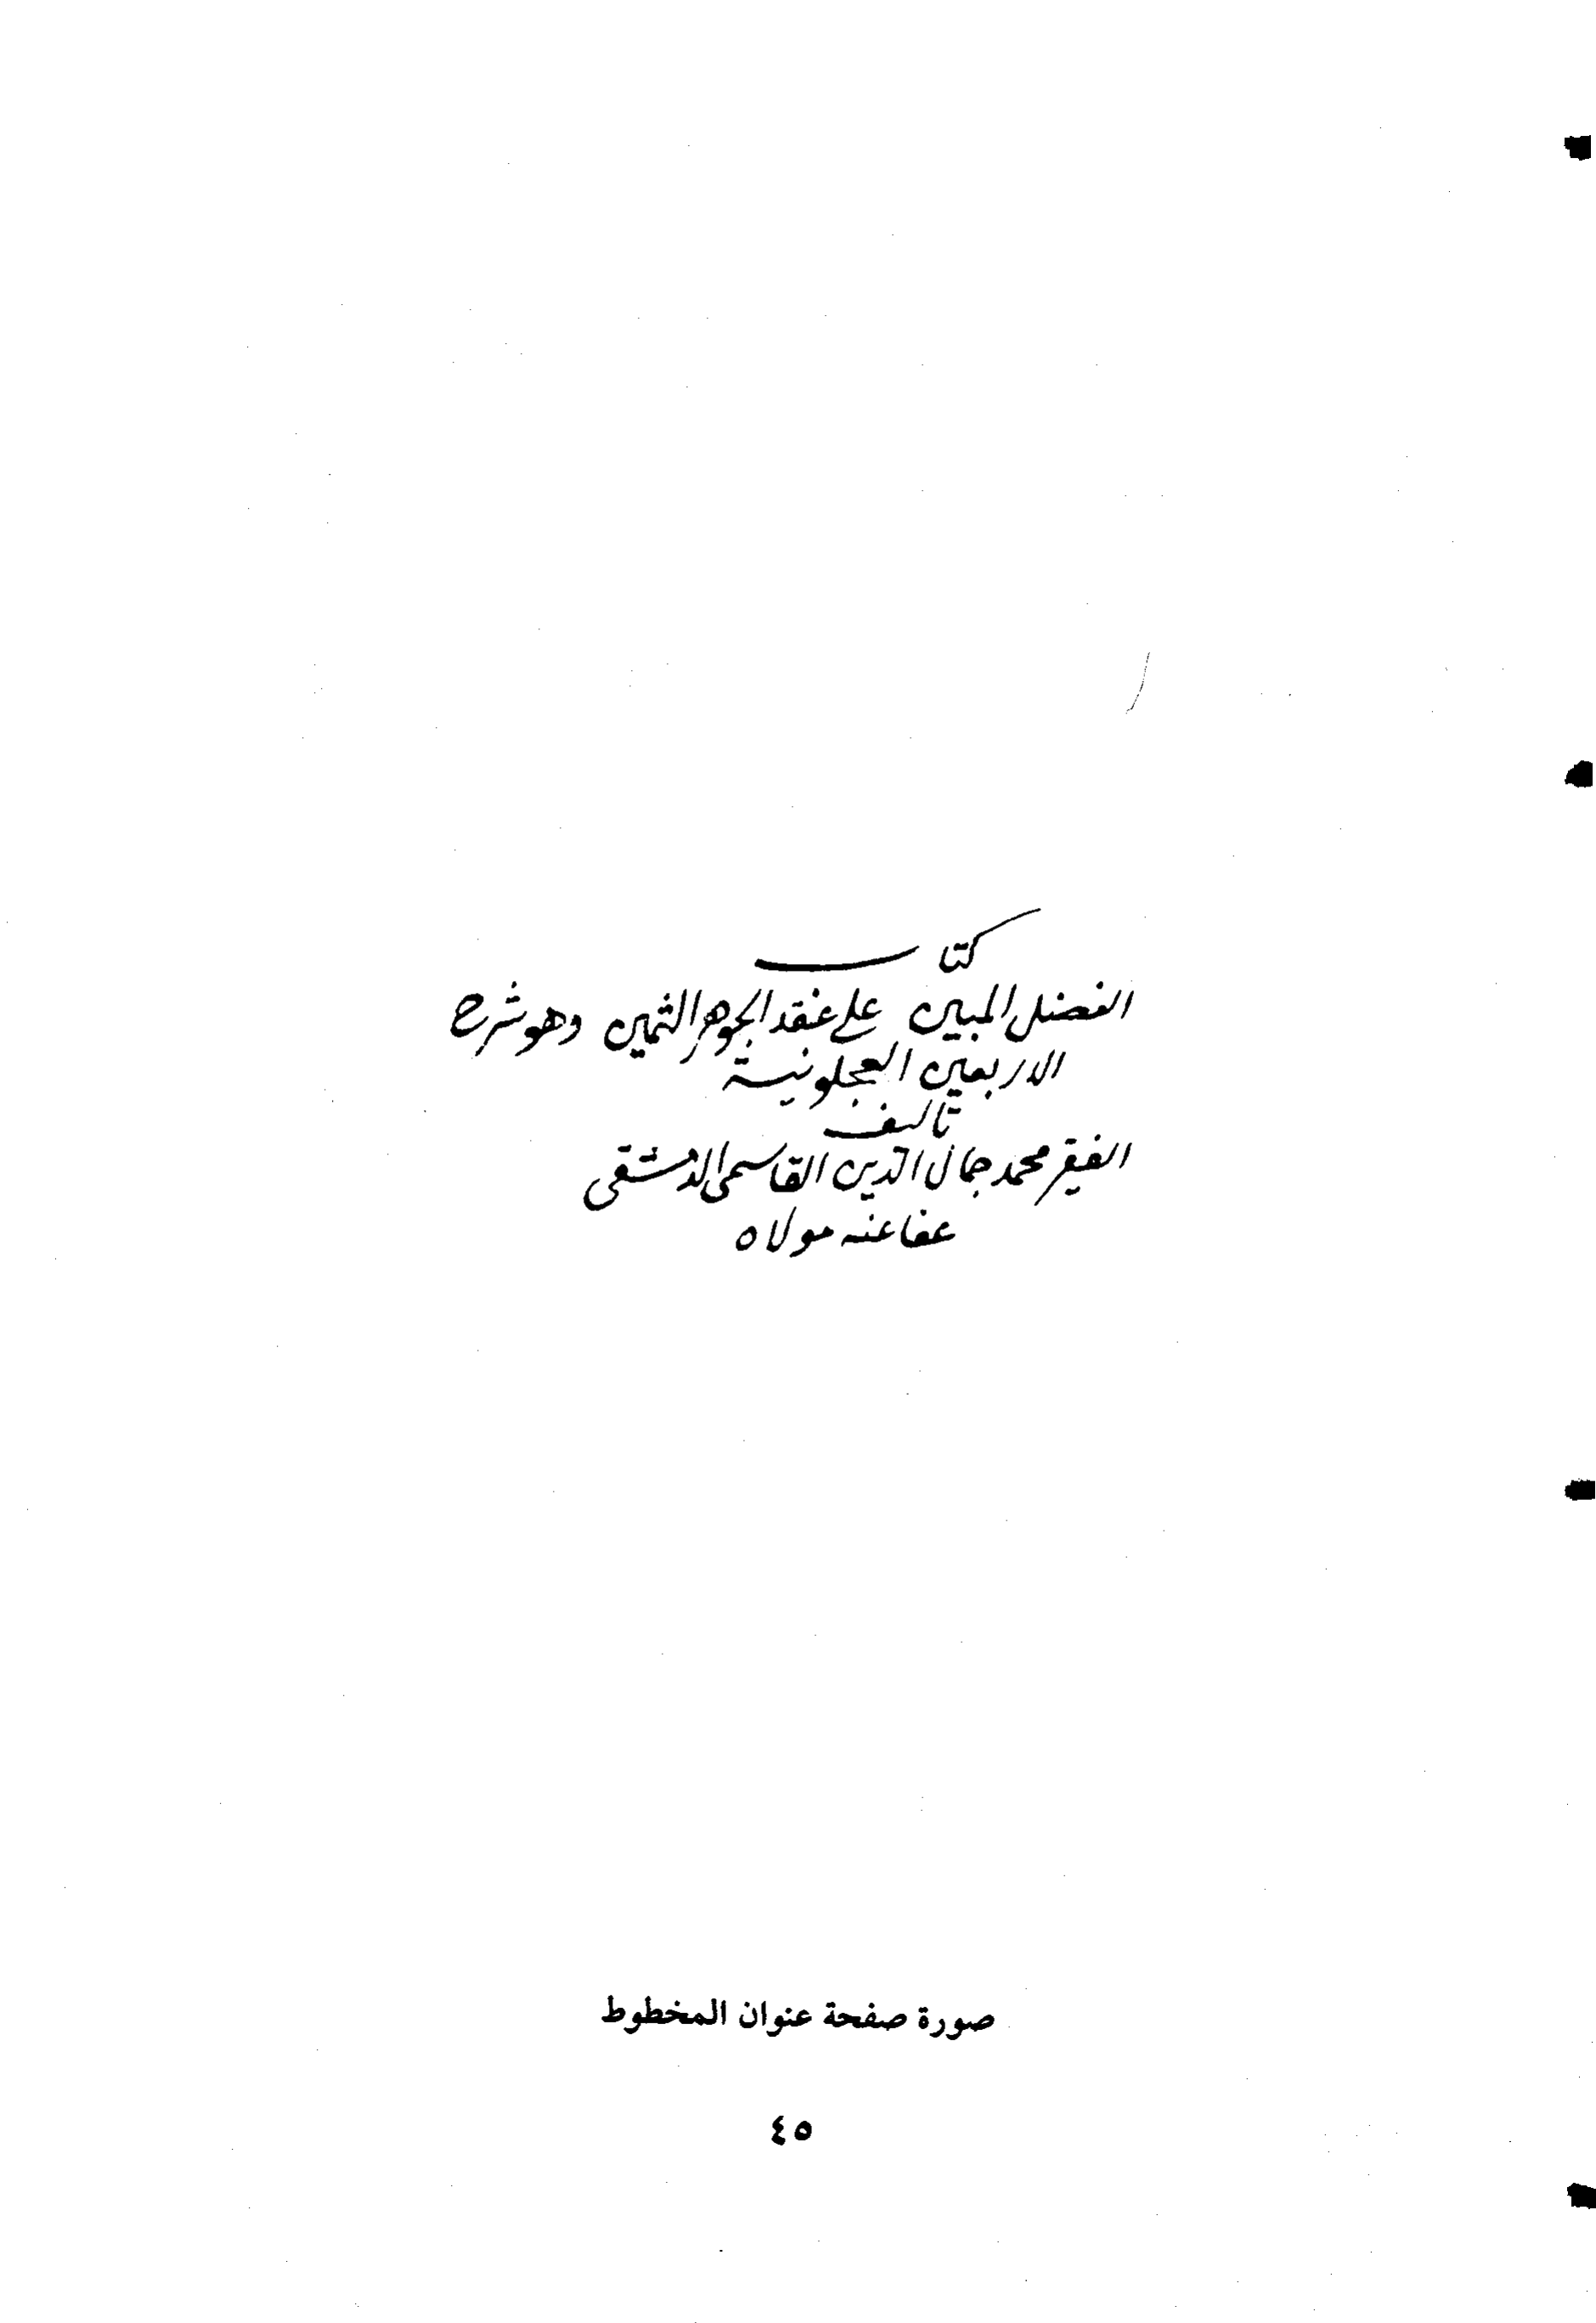 كتاب
الفضل المبين على عقد الجوهر الثمين وهو شرح
الاربعين العجلونية
تأليف
الفقير محمد جمال الدين القاسمي الدمشقي
عفا عنه مولاه
صورة صفحة عنوان المخطوط
٤٥